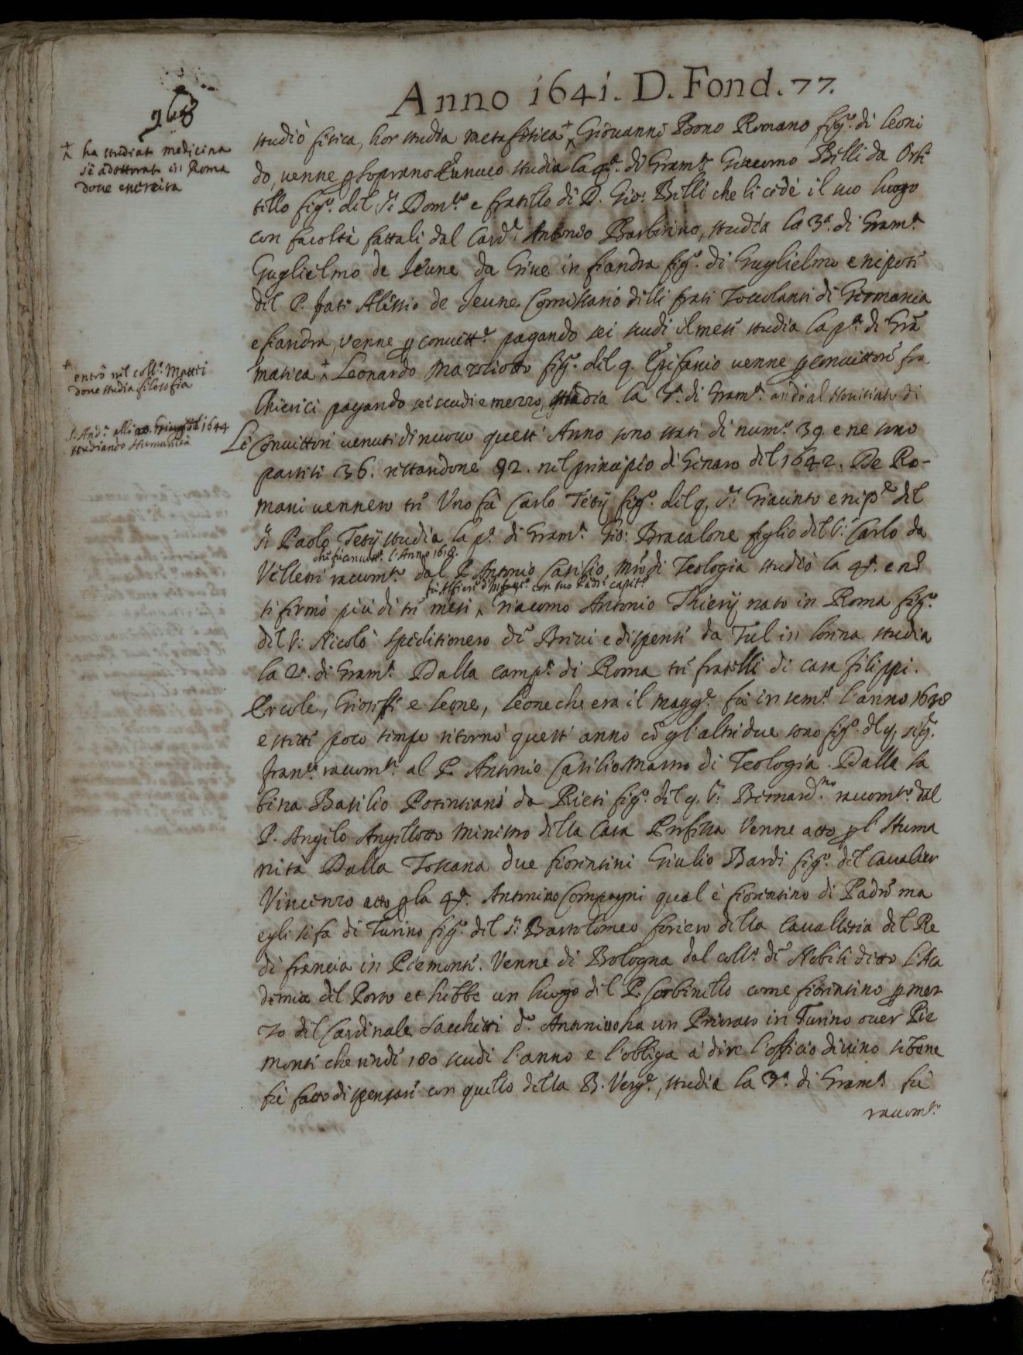 268
Anno 1641. D. Fond. 77.
studiò fisica, hor studia metafisica + Giovanni Bono Romano figº. di Leoni
+ ha studiato medicina
si è adottorato in Roma
dove esercita
do, venne p soprano Eunuco studia la 4ª. di Gram.ª Giacomo Billi da Orti
tello figº. del Sr. Dom.co e fratello di D. Gio: Billi che li cede il suo luogo
con facoltà fattali dal Card.l Antonio Barberino, studia la 3ª. di Gram.ª
Guglielmo de Jeune da Give in fiandra figº. di Guglielmo e nipote
del P. frate Alessio de Jeune Comissario delli frati Zoccolanti di Germania
e fiandra venne p convitt.e pagando sei scudi il mese studia la pª. di Grã
matica + Leonardo Mazziotto figº. del q. Epifanio venne p convittore fra
+ entrò nel coll.º Mattei
dove studia filosofia
Chierici pagando sei scudi e mezzo, studia la 3ª. di Gram.ª andò al Novitiato di
S. And.ª alli 20. Giugno 1644
studiando Humanità
Li Convittori venuti di nuovo quest' Anno sono stati di num.º 39 e ne sono
partiti 36. restandone 92. nel principio di Genaro del 1642. De Ro-
mani vennero tre Uno fù Carlo Tetij figº. del q. Sr. Giacinto e nip.e del
Sr. Paolo Tetij studia la pª. di Gram.ª Gio: Bracalone figlio del Sr. Carlo da
che fu convitt.e l'Anno 1618.
Velletri racom.to dal P. Antonio Casilio Mro di Teologia studiò la 4ª. e nõ
si fermò più di tre mesi, Giacomo Antonio Thierij nato in Roma figº.
del Sr. Nicolò speditionero di Brevi e dispense da Tul in lorena studia
la 2ª. di Gram.ª Dalla camp.ª di Roma tre fratelli di casa filippi.
Ercole, Gioseffe e Leone, Leone che era il magg.e fù in sem.º l'anno 1638
e stette poco tempo ritornò quest' anno cõ gl'altri due sono figº. del q. sigr.
Fran.co racom.ti al P. Antonio Casilio Mastro di Teologia. Dalla sa
bina Basilio Potentiani da Rieti figº. del q. Sr. Bernard.no racom.to dal
P. Angelo Angellotto Ministro della Casa Professa Venne atto p l'Huma
nità Dalla Toscana due fiorentini Giulio Bardi figº. del Cavalier
Vincenzo atto p la 4ª. Antonino Compagni qual è fiorentino di Padre ma
egli si fà di Turino figº. del Sr. Bartolomeo foriero della Cavalleria del Re
di francia in Piemonte. Venne di Bologna dal coll.º de Nobili detto l'Aca
demia del Porto et hebbe un luogo del P. Corbinello come fiorentino p mez
zo del Cardinale Sacchetti dº. Antonino ha un Priorato in Turino over Pie
monte che rende 180 scudi l'anno e l'obliga a dire l'officio divino sebene
fù fatto dispensare con quello della B. Verg.e, studia la 3ª. di Gram.ª fù
racom.to